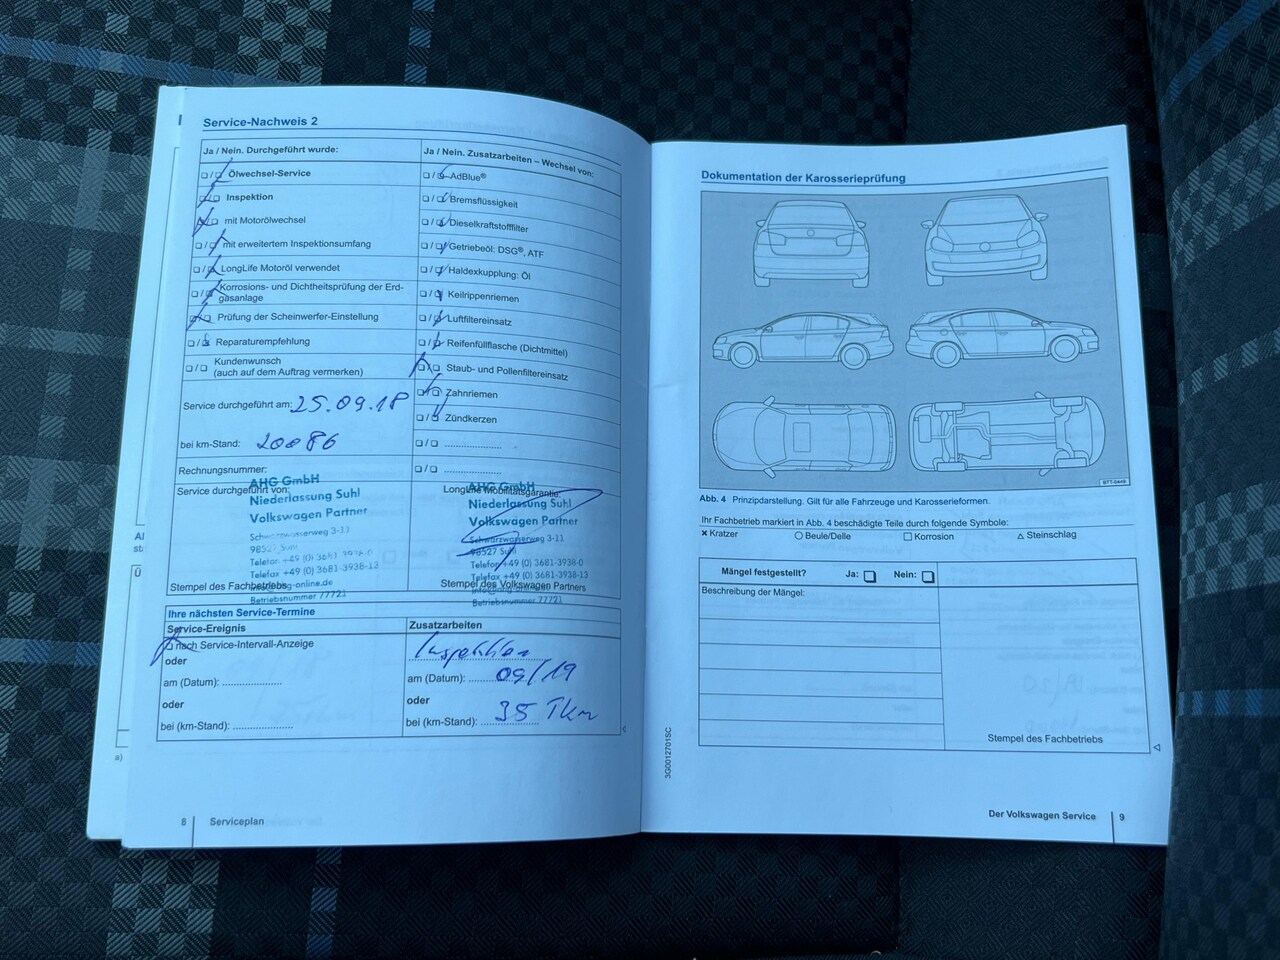 Service-Nachweis 2
Ja / Nein. Durchgeführt wurde:
Ölwechsel-Service
Inspektion
mit Motorölwechsel
mit erweitertem Inspektionsumfang
LongLife Motoröl verwendet
Korrosions- und Dichtheitsprüfung der Erd-
gasanlage
Prüfung der Scheinwerfer-Einstellung
Reparaturempfehlung
Kundenwunsch
(auch auf dem Auftrag vermerken)
Service durchgeführt am: 25.09.18
bei km-Stand: 20086
Rechnungsnummer:
Service durchgeführt von:
AHG GmbH
Niederlassung Suhl
Volkswagen Partner
Schwarzwasserweg 3-11
98527 Suhl
Telefon +49 (0) 3681-3938-0
Telefax +49 (0) 3681-3938-13
Betriebsnummer 77721
Stempel des Fachbetriebs
Ja / Nein. Zusatzarbeiten – Wechsel von:
AdBlue®
Bremsflüssigkeit
Dieselkraftstofffilter
Getriebeöl: DSG®, ATF
Haldexkupplung: Öl
Keilrippenriemen
Luftfiltereinsatz
Reifenfüllflasche (Dichtmittel)
Staub- und Pollenfiltereinsatz
Zahnriemen
Zündkerzen
LongLife Mobilitätsgarantie
AHG GmbH
Niederlassung Suhl
Volkswagen Partner
Schwarzwasserweg 3-11
98527 Suhl
Telefon +49 (0) 3681-3938-0
Telefax +49 (0) 3681-3938-13
Betriebsnummer 77721
Stempel des Volkswagen Partners
Ihre nächsten Service-Termine
Service-Ereignis
nach Service-Intervall-Anzeige
oder
am (Datum):
oder
bei (km-Stand):
Zusatzarbeiten
Inspektion
am (Datum): 09/19
oder
bei (km-Stand): 35 Tkm
8 Serviceplan
Dokumentation der Karosserieprüfung
BTT-0449
Abb. 4 Prinzipdarstellung. Gilt für alle Fahrzeuge und Karosserieformen.
Ihr Fachbetrieb markiert in Abb. 4 beschädigte Teile durch folgende Symbole:
× Kratzer ○ Beule/Delle □ Korrosion △ Steinschlag
Mängel festgestellt? Ja: Nein:
Beschreibung der Mängel:
Stempel des Fachbetriebs
3G0012701SC
Der Volkswagen Service 9